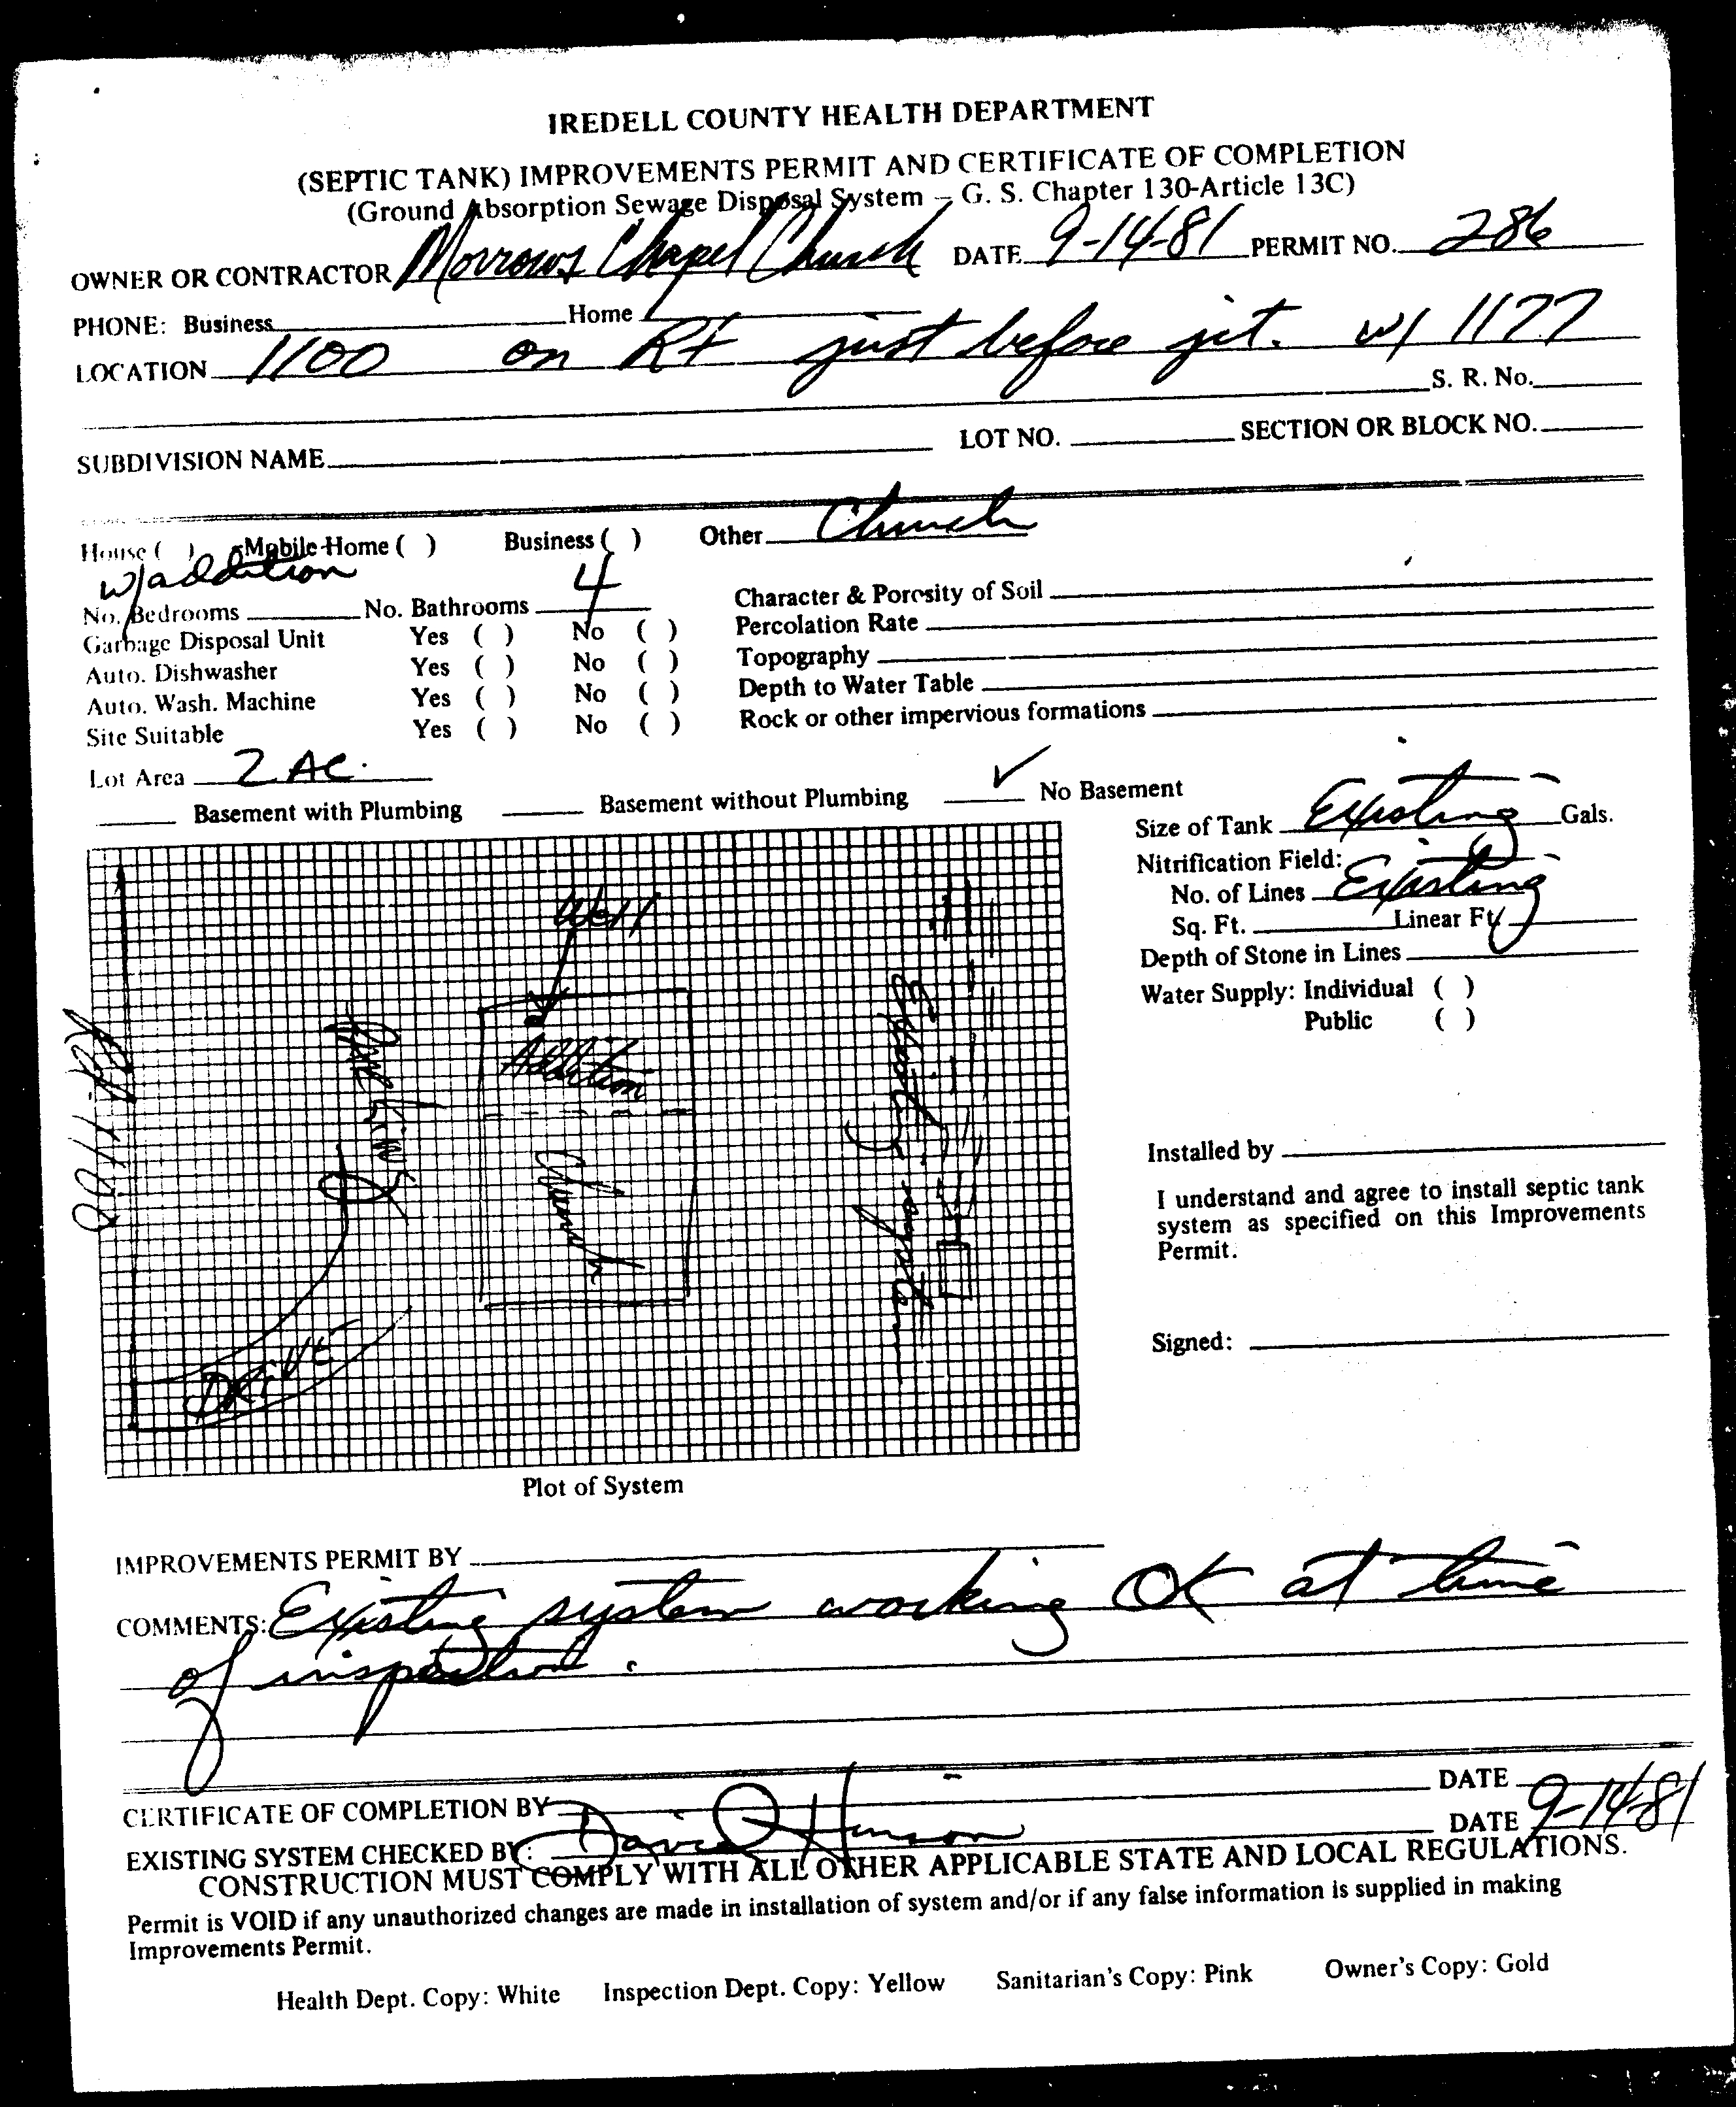 IREDELL COUNTY HEALTH DEPARTMENT
(SEPTIC TANK) IMPROVEMENTS PERMIT AND CERTIFICATE OF COMPLETION
(Ground Absorption Sewage Disposal System – G. S. Chapter 130-Article 13C)
OWNER OR CONTRACTOR Morrows Chapel Church DATE 9-14-81 PERMIT NO. 286
PHONE: Business Home
LOCATION 1100 on Rt just before jct. w/ 1177
S. R. No.
SUBDIVISION NAME LOT NO. SECTION OR BLOCK NO.
House ( ) Mobile Home ( ) Business ( ) Other Church
w/addition
No. Bedrooms No. Bathrooms 4
Garbage Disposal Unit Yes ( ) No ( )
Auto. Dishwasher Yes ( ) No ( )
Auto. Wash. Machine Yes ( ) No ( )
Site Suitable Yes ( ) No ( )
Character & Porosity of Soil
Percolation Rate
Topography
Depth to Water Table
Rock or other impervious formations
Lot Area 2 AC.
Basement with Plumbing Basement without Plumbing ✓ No Basement
Size of Tank Existing Gals.
Nitrification Field:
No. of Lines Existing
Sq. Ft. Linear Ft.
Depth of Stone in Lines
Water Supply: Individual ( )
Public ( )
Well
Addition
Church
Parking
Existing system
Rd. 1100
DRIVE
Installed by
I understand and agree to install septic tank
system as specified on this Improvements
Permit.
Signed:
Plot of System
IMPROVEMENTS PERMIT BY
COMMENTS: Existing system working OK at time
of inspection.
CERTIFICATE OF COMPLETION BY DATE
EXISTING SYSTEM CHECKED BY: David Hinson DATE 9-14-81
CONSTRUCTION MUST COMPLY WITH ALL OTHER APPLICABLE STATE AND LOCAL REGULATIONS.
Permit is VOID if any unauthorized changes are made in installation of system and/or if any false information is supplied in making
Improvements Permit.
Health Dept. Copy: White Inspection Dept. Copy: Yellow Sanitarian's Copy: Pink Owner's Copy: Gold